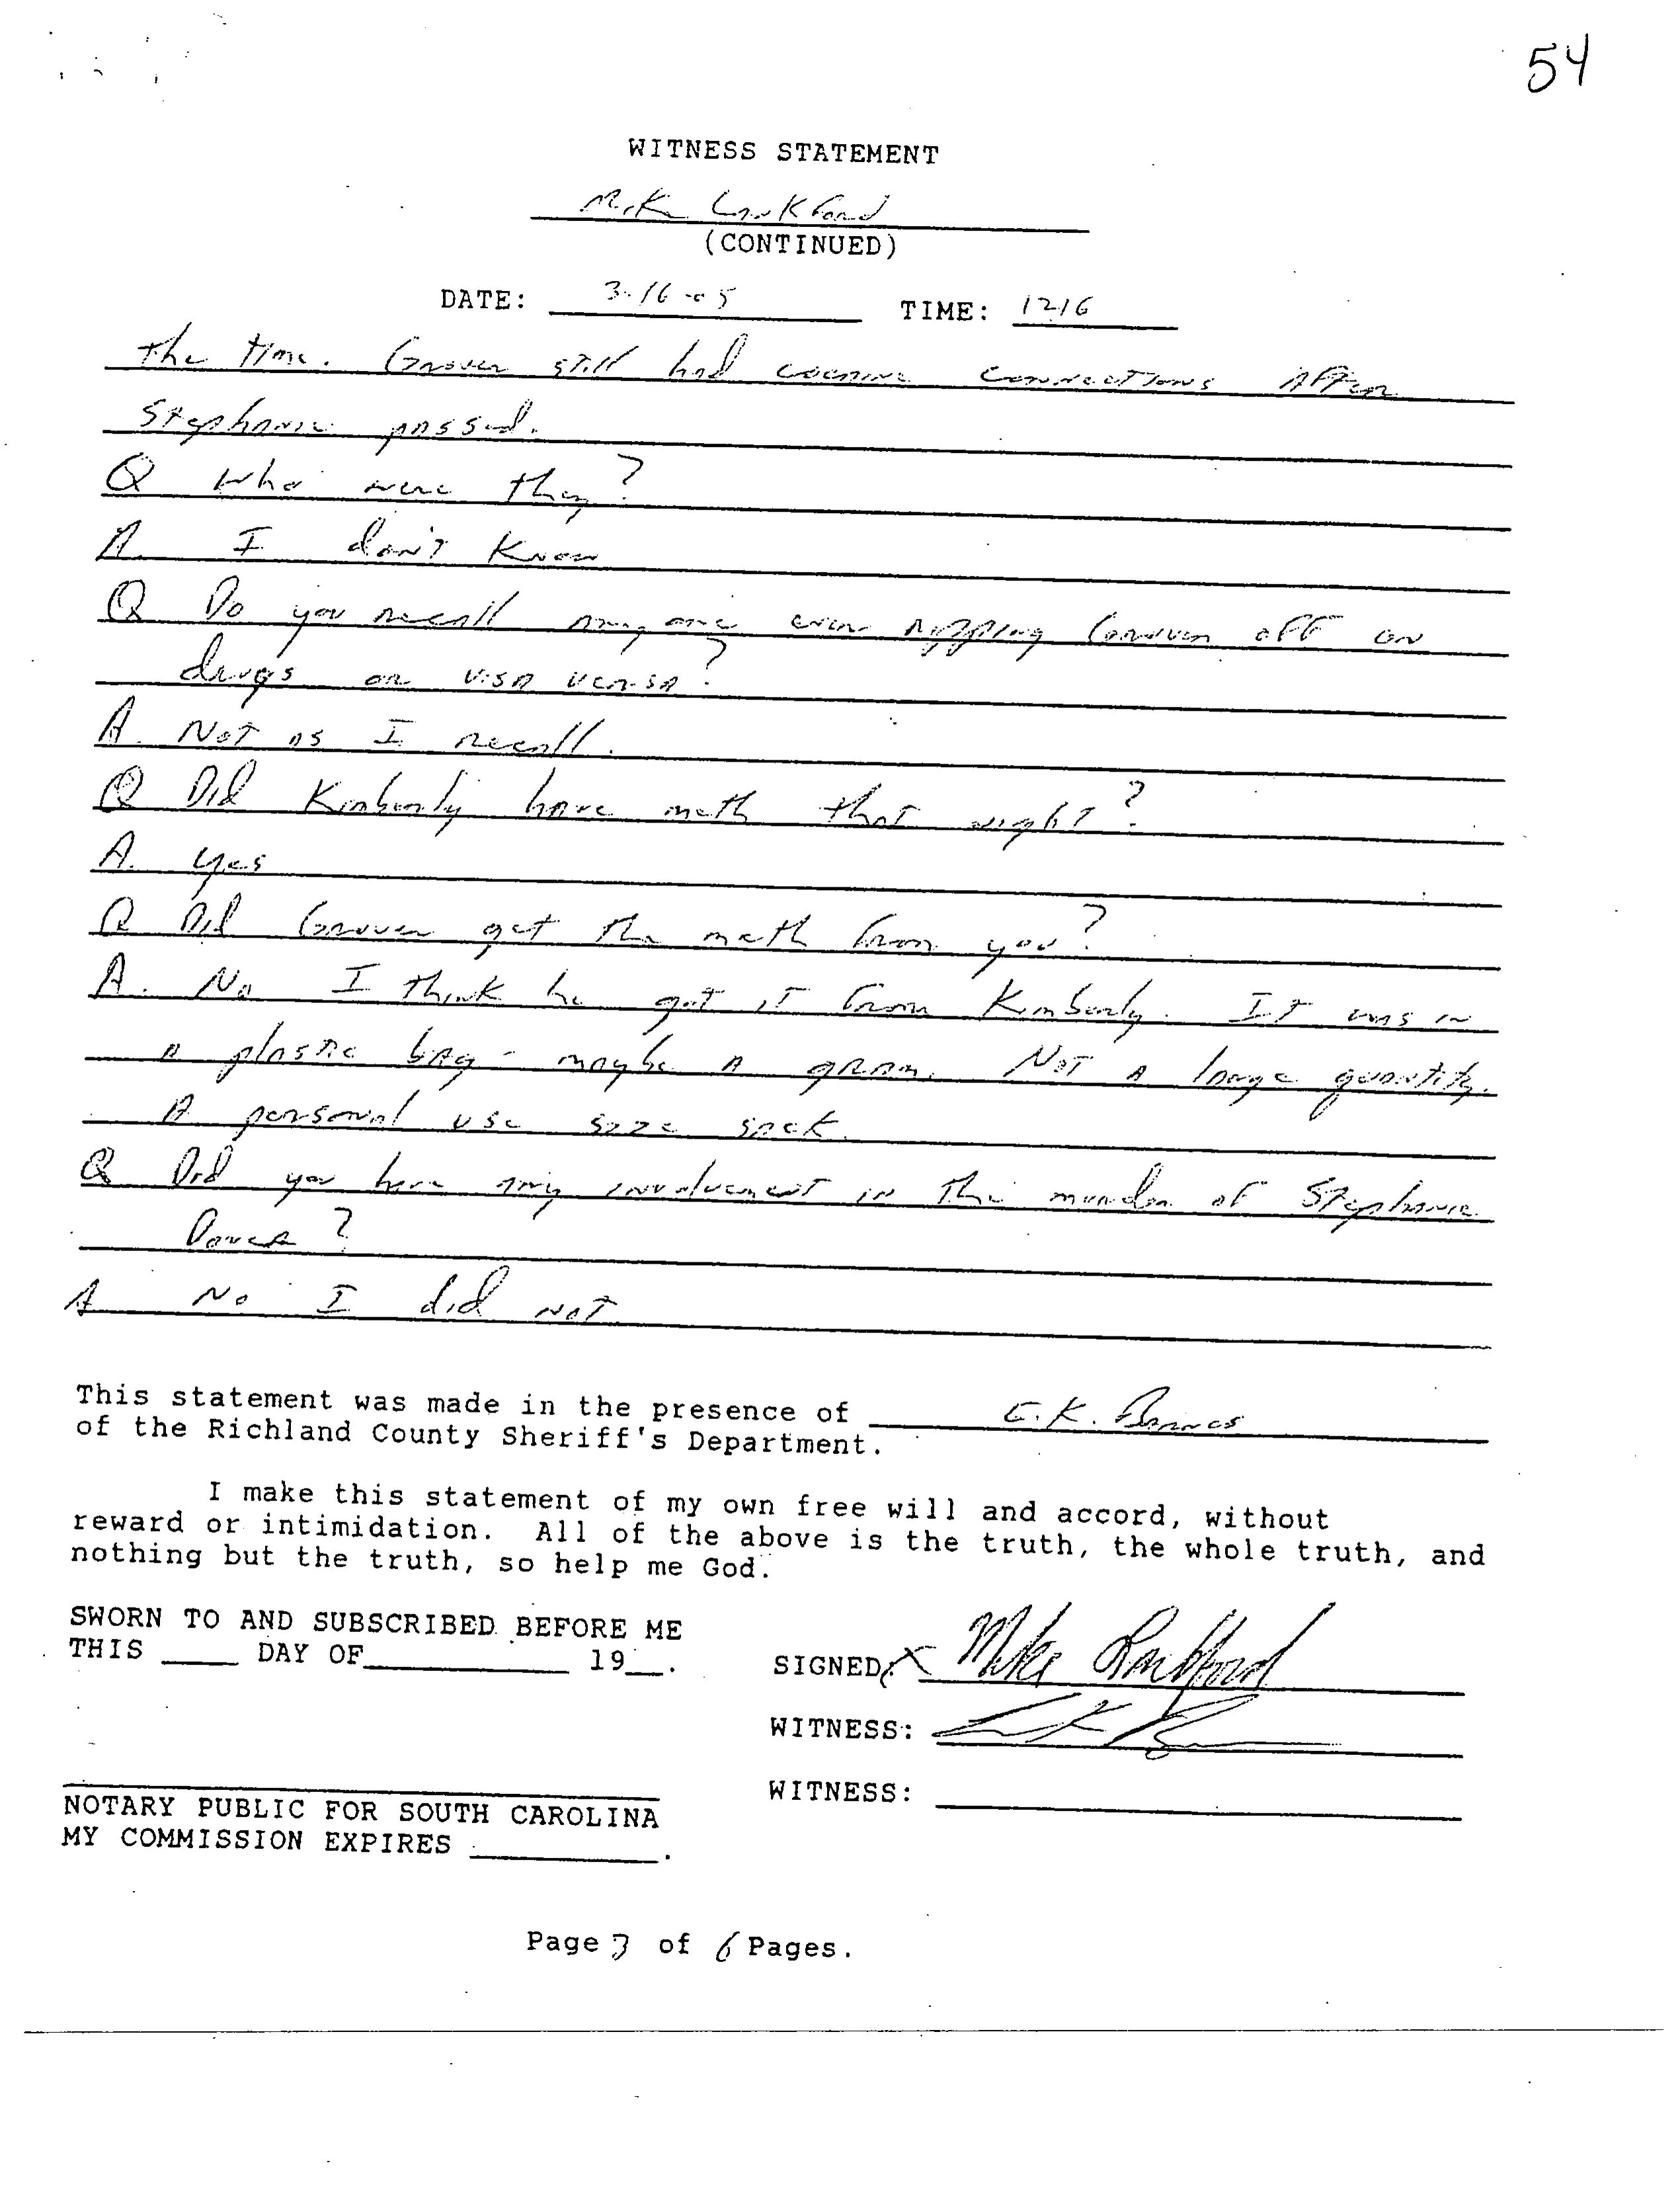 54
WITNESS STATEMENT
Mike Lankford
(CONTINUED)
DATE: 3-16-05 TIME: 1216
the time. Grover still had cocaine connections after
Stephanie passed.
Q Who were they?
A. I don't know
Q Do you recall anyone ever ripping Grover off on
drugs or visa versa?
A. Not as I recall.
Q Did Kimberly have meth that night?
A. yes
Q Did Grover get the meth from you?
A. No I think he got it from Kimberly. It was in
a plastic bag - maybe a gram. Not a large quantity.
A personal use size sack.
Q Did you have any involvement in the murder of Stephanie
?
A No I did not
This statement was made in the presence of E.K. Barnes
of the Richland County Sheriff's Department.
I make this statement of my own free will and accord, without
reward or intimidation. All of the above is the truth, the whole truth, and
nothing but the truth, so help me God.
SWORN TO AND SUBSCRIBED BEFORE ME
THIS ____ DAY OF___________ 19__.
SIGNED: X Mike Lankford
WITNESS:
WITNESS:
NOTARY PUBLIC FOR SOUTH CAROLINA
MY COMMISSION EXPIRES __________.
Page 3 of 6 Pages.